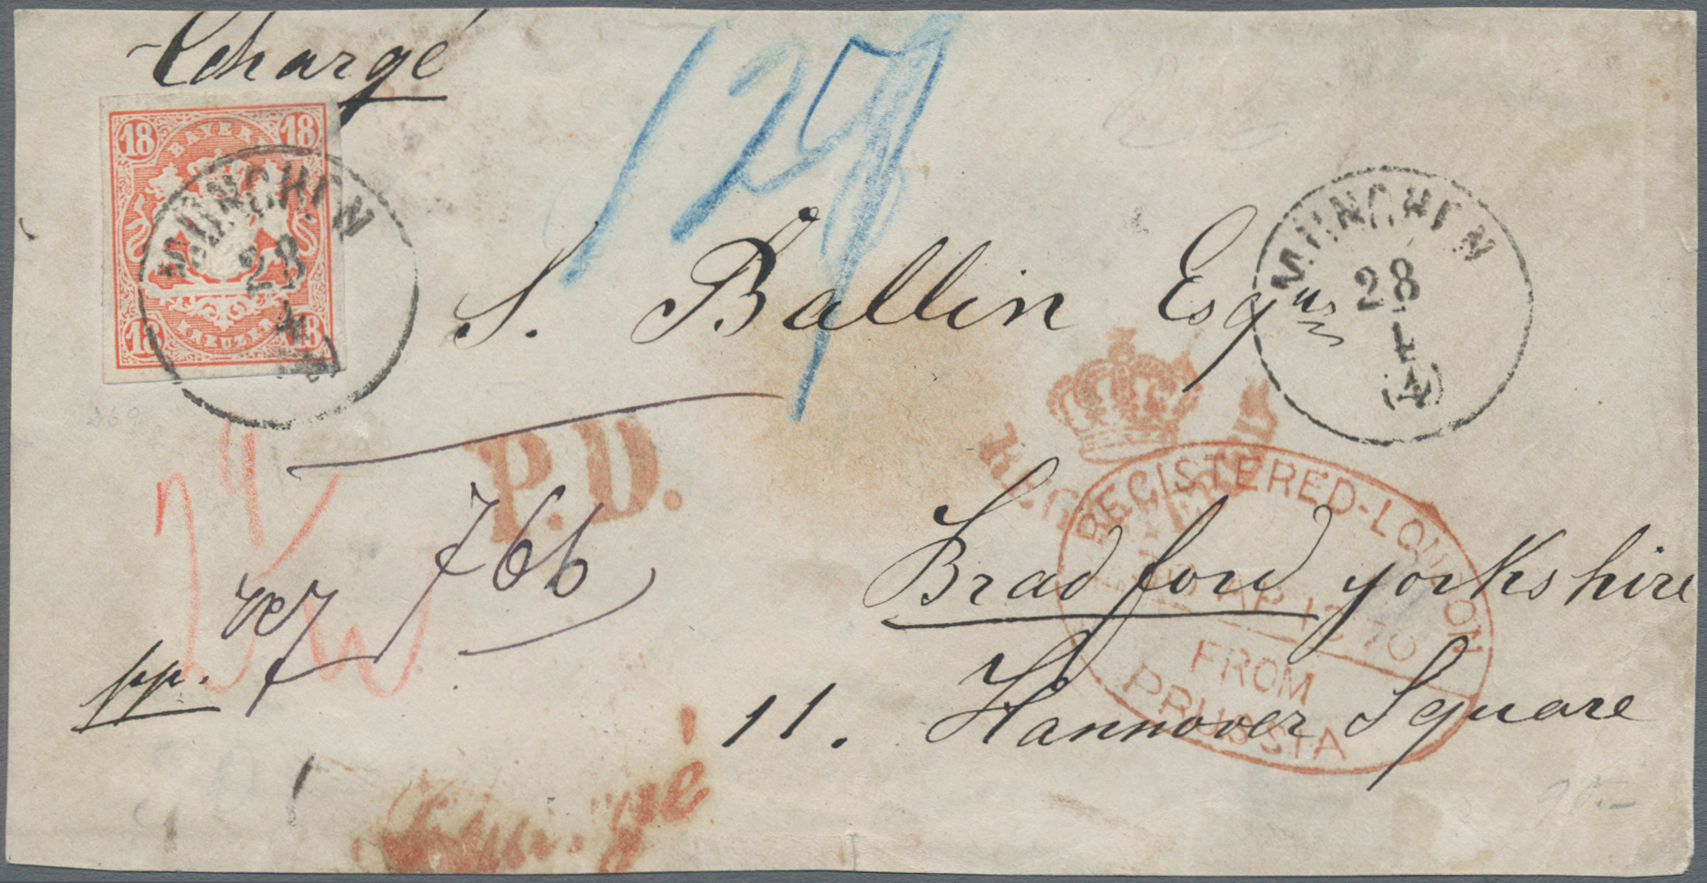 Chargé
18 18
BAYERN
18 KREUZER 18
MÜNCHEN
28
4
129
S. Ballin Esq
MÜNCHEN
28
4
(4)
P.D.
REGISTERED
REGISTERED-LONDON
AP 1 70
FROM
PRUSSIA
766
Bradford Yorkshire
pp.
11. Hannover Square
Chargé
90.-